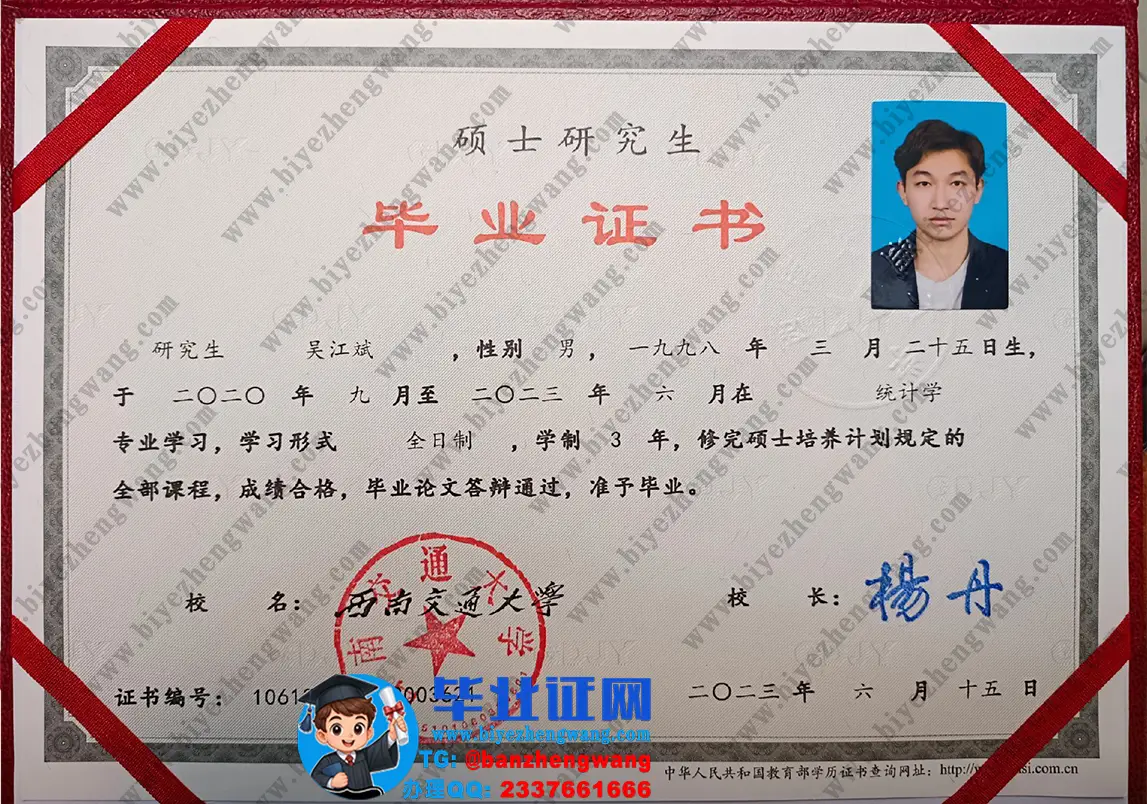 硕士研究生
毕业证书
研究生 吴江斌 ，性别 男 ， 一九九八 年 三 月 二十五日生，
于 二〇二〇 年 九 月至 二〇二三 年 六 月在 统计学
专业学习，学习形式 全日制 ，学制 3 年，修完硕士培养计划规定的
全部课程，成绩合格，毕业论文答辩通过，准予毕业。
校 名： 西南交通大學 校 长： 楊丹
证书编号： 1061 003621 二〇二三 年 六 月 十五 日
毕业证网
www.biyezhengwang.com
TG: @banzhengwang
办理QQ: 2337661666
中华人民共和国教育部学历证书查询网址：http://w si.com.cn
www.biyezhengwang.com